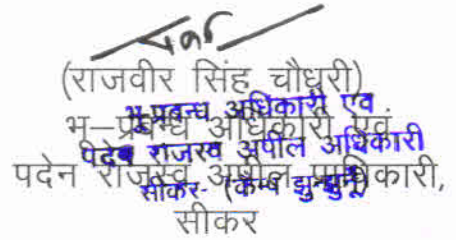 (राजवीर सिंह चौधरी)
भू-प्रबन्ध अधिकारी एवं
भ–प्रबन्ध अधिकारी एवं
पदेन राजस्व अपील अधिकारी
पदेन राजस्व अपील प्राधिकारी,
सीकर- (कैम्प झुन्झुनू)
सीकर